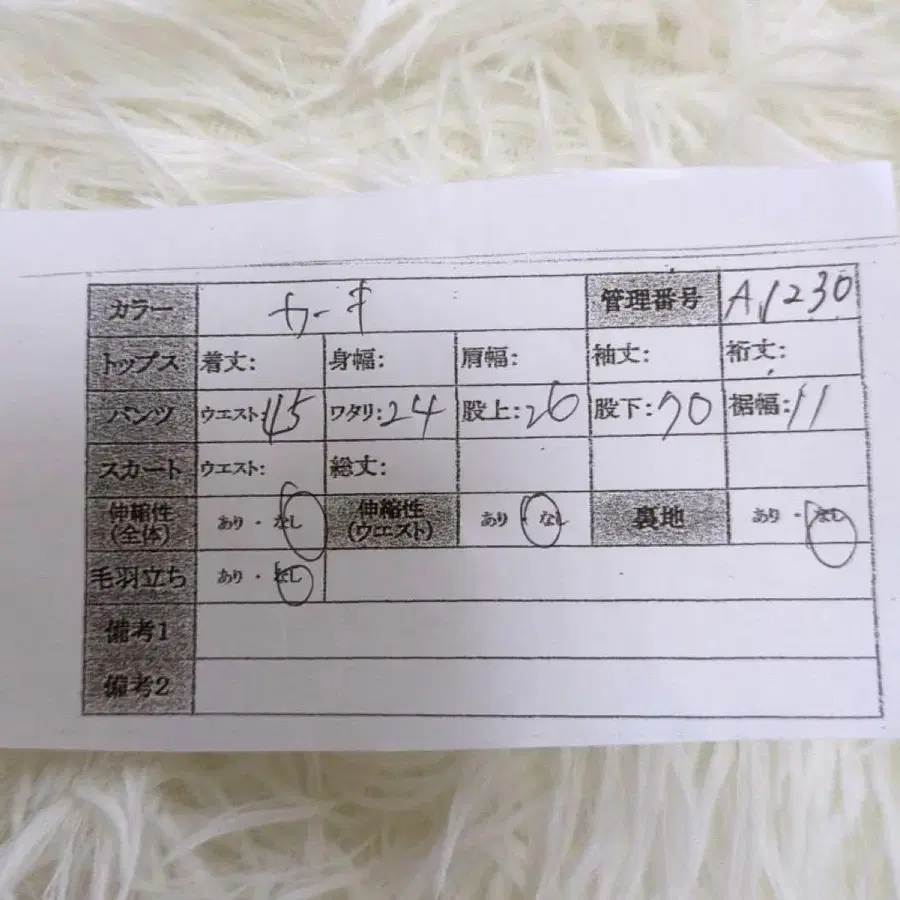 カラー カーキ 管理番号 A1230
トップス 着丈: 身幅: 肩幅: 袖丈: 裄丈:
パンツ ウエスト:45 ワタリ:24 股上:26 股下:70 裾幅:11
スカート ウエスト: 総丈:
伸縮性(全体) あり・なし 伸縮性(ウエスト) あり・なし 裏地 あり・なし
毛羽立ち あり・なし
備考1
備考2